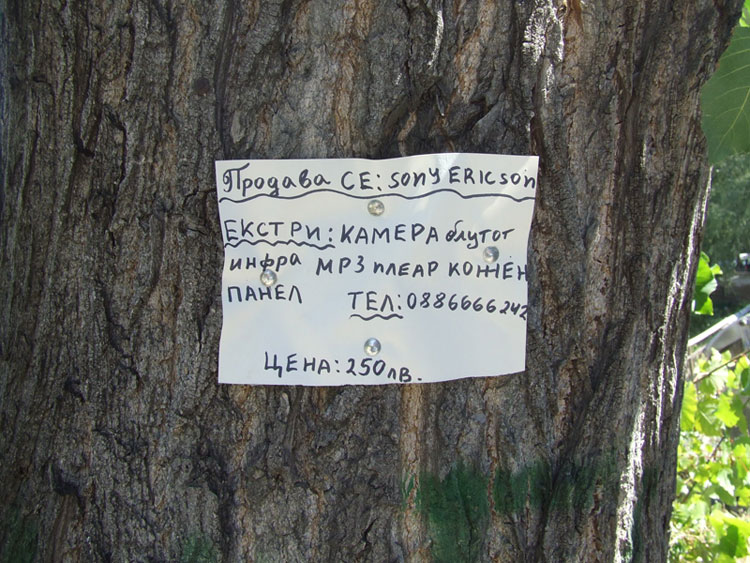 Продава СЕ: SONY ERICSON
ЕКСТРИ: КАМЕРА блутот
инфра МР3 плеар КОЖЕН
ПАНЕЛ ТЕЛ: 0886666242
ЦЕНА: 250лв.